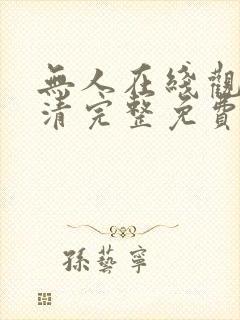 無人在綫觀
清完整免費
孫藝寧